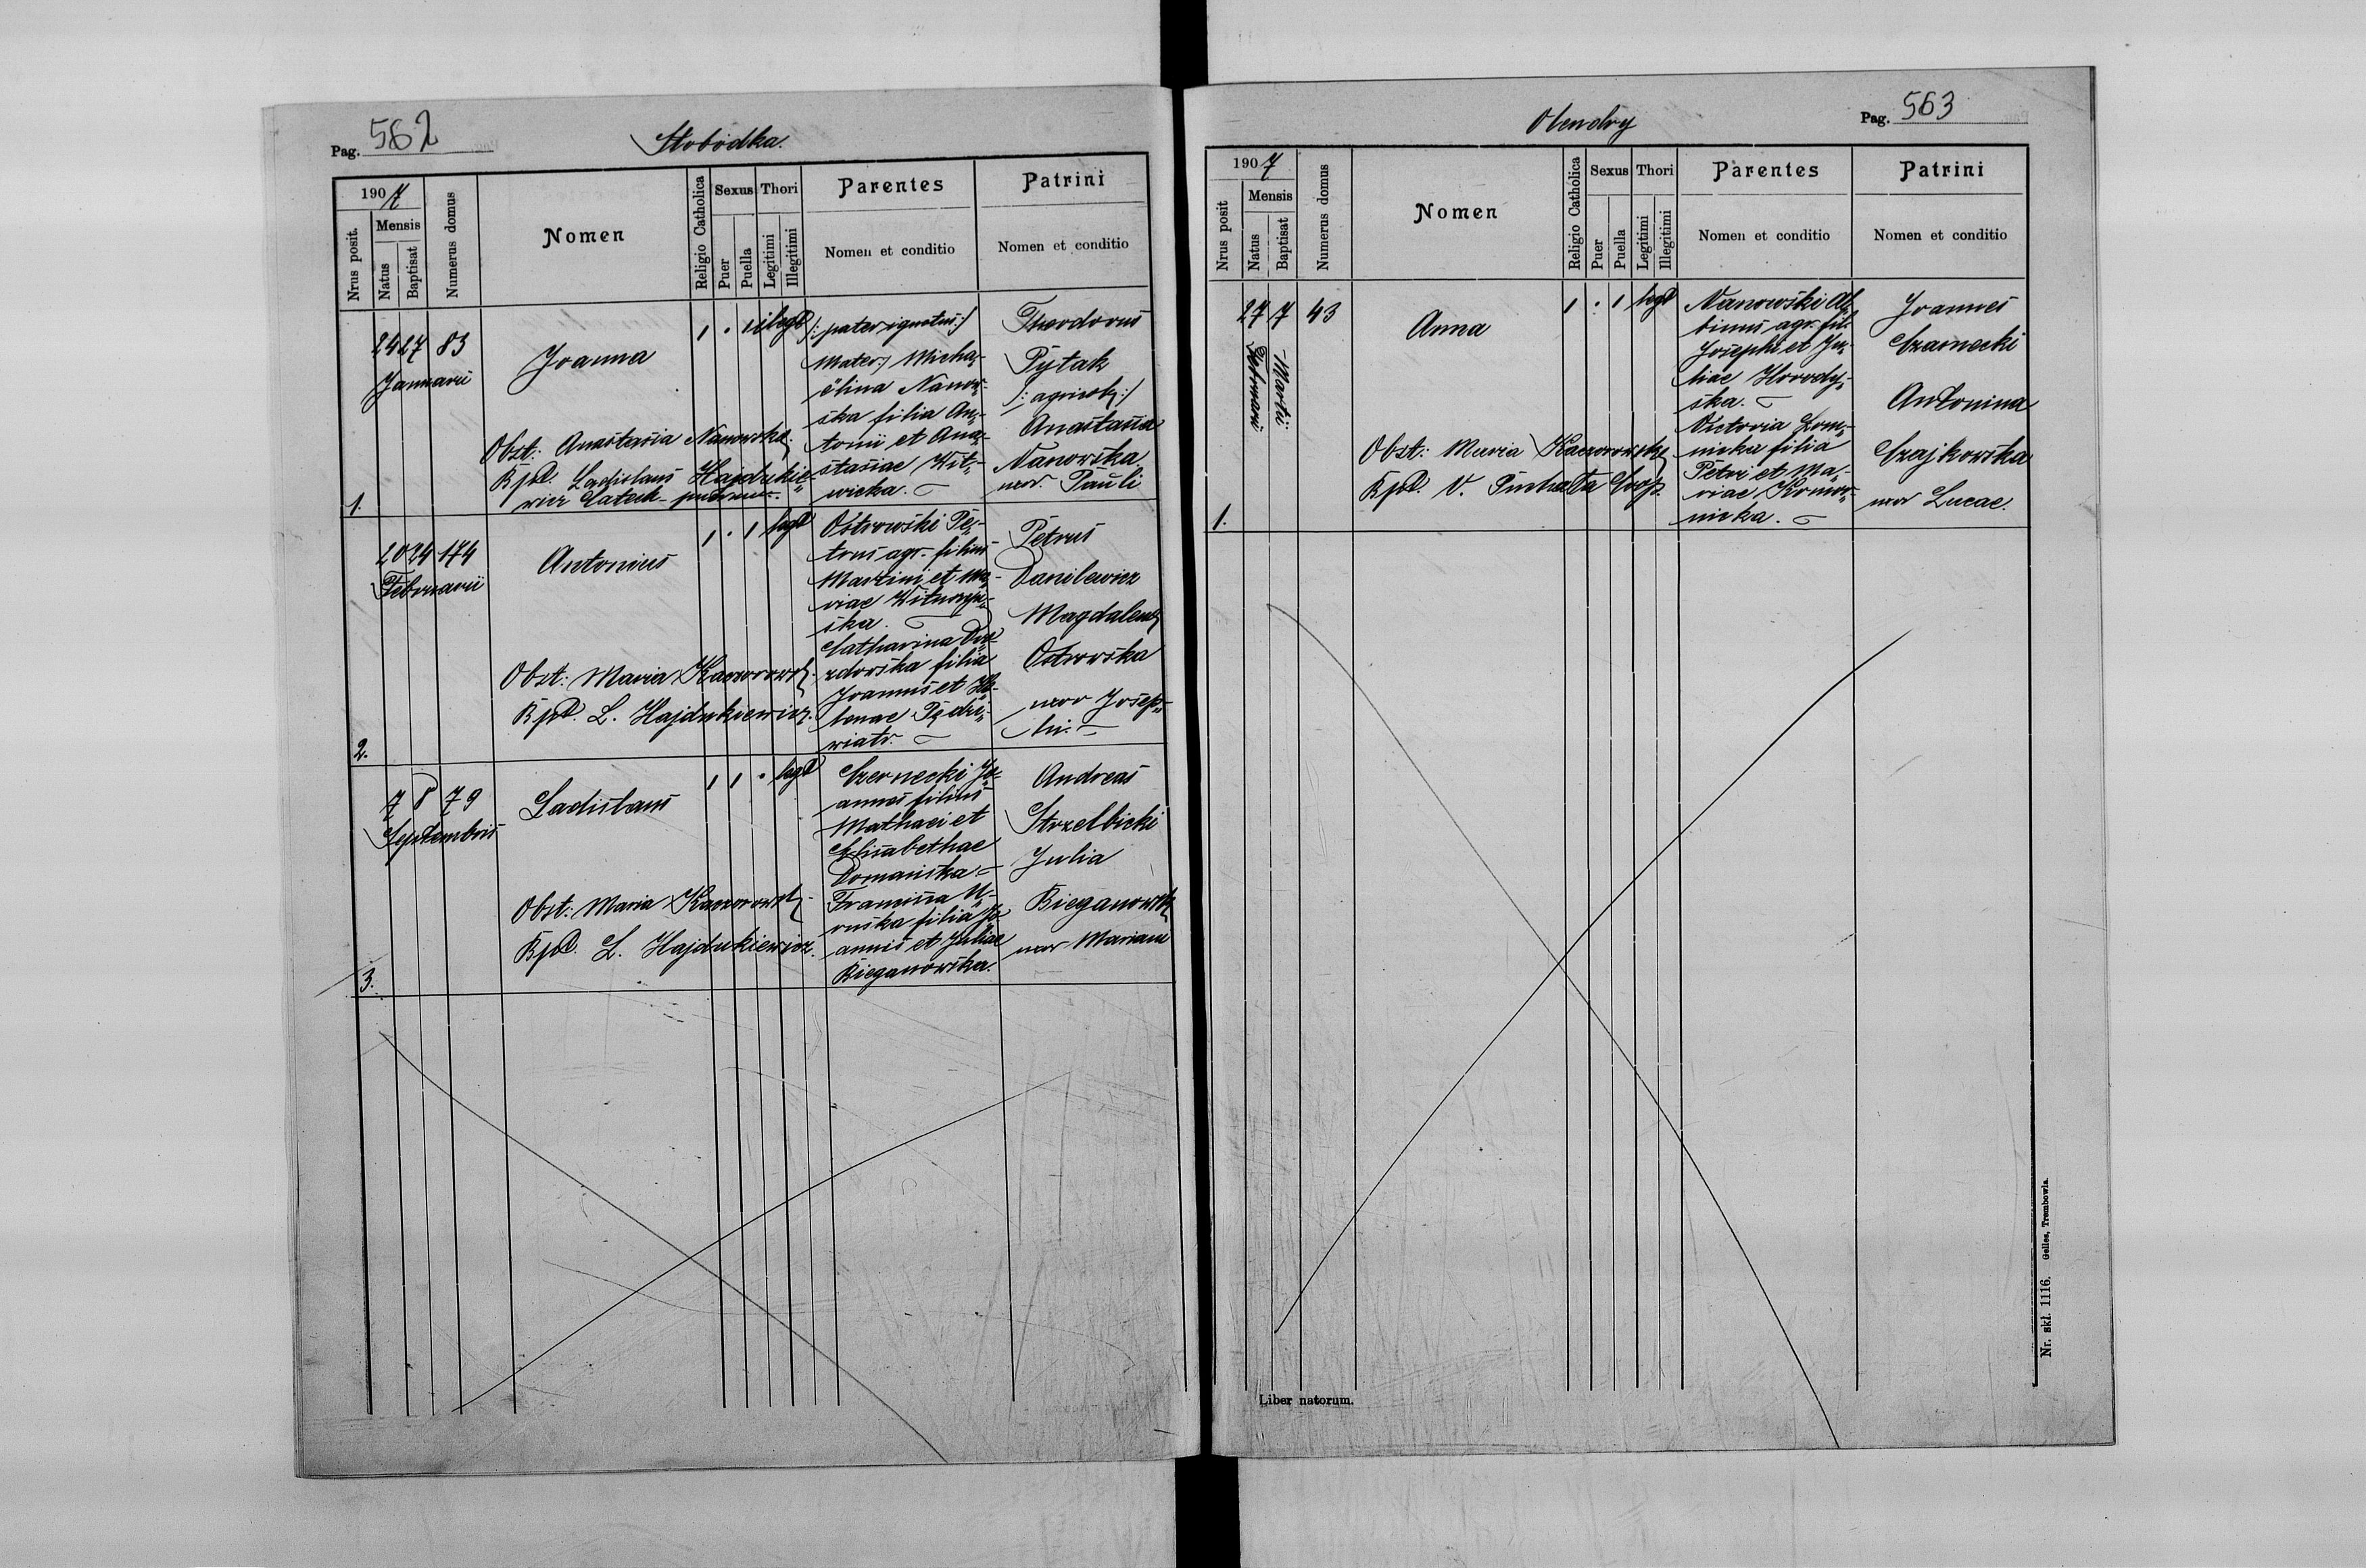 Pag. 562
Słobódka.
1907
Nrus posit.
Mensis
Natus
Baptisat
Numerus domus
Nomen
Religio Catholica
Sexus
Puer
Puella
Thori
Legitimi
Illegitimi
Parentes
Nomen et conditio
Patrini
Nomen et conditio
1.
24 27 83
Januarii
Joanna
Obst: Anastasia Nanowska
Bpt. Ladislaus Hajdukie-
wicz Catech.
1 . 1 illegt
/: pater ignotus :/
Mater: Micha-
ëlina Nanow-
ska filia An-
tonii et Ana-
stasiae Wit-
wicka.
Theodorus
Pytak
/: agricola :/
Anastasia
Nanowska
uxor Pauli
2.
20 24 174
Februarii
Antonius
Obst: Maria Kaczorowska
Bpt. L. Hajdukiewicz.
1 . 1 legt
Ostrowski Pe-
trus agr. filius
Martini et Ma-
riae
ska.
Catharina
zdowska filia
Joannis et He-
lenae
wiatr.
Petrus
Danilewicz
Magdalena
Ostrowska
uxor Josep-
hi.
3.
7 8 79
Septembris
Ladislaus
Obst: Maria Kaczorowska
Bpt. L. Hajdukiewicz.
1 1 . legt
Czernecki Jo-
annes filius
Mathaei et
Elisabethae
Domańska.
filia Jo-
annis et Juliae
Bieganowska.
Andreas
Strzelbicki
Julia
Bieganowska
uxor Mariani
Olendry
Pag. 563
1907
Nrus posit
Mensis
Natus
Baptisat
Numerus domus
Nomen
Religio Catholica
Sexus
Puer
Puella
Thori
Legitimi
Illegitimi
Parentes
Nomen et conditio
Patrini
Nomen et conditio
1.
27 7 43
Februarii
Martii
Anna
Obst: Maria Kaczorowska
Bpt. V. Coop.
1 . 1 legt
Nanowski Al-
binus agr. fil.
Josephi et Ju-
liae Horody-
ska.
Victoria Łom-
nicka filia
Petri et Ma-
riae Komar-
nicka.
Joannes
Czarnecki
Antonina
Czajkowska
uxor Lucae.
Liber natorum.
Nr. skł. 1116. Gelles, Trembowla.